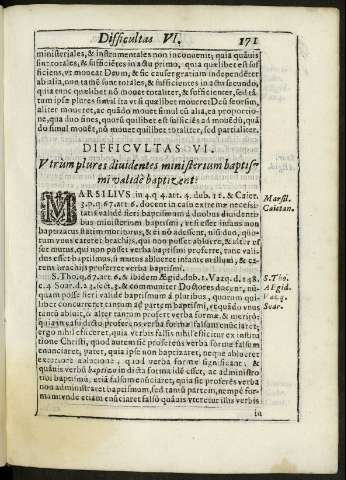 Difficultas VI. 171
ministeriales, & instrumentales non inconuenit; quia quãuis
sint totales, & sufficiẽtes in actu primo, quia quælibet est suf
ficiens, vt moueat Deum, & sic causet gratiam independẽter
ab alia, non tamẽ sunt totales, & sufficientes in actu secundo,
quia tunc quælibet nõ mouet totaliter, & sufficienter, sed tã
tum ipsæ plures simul ita vt si quælibet moueret Deũ seorsim,
aliter moueret, ac quãdo mouet simul cũ alia, ea proportio-
ne, qua duo sines, quorũ quilibet est sufficiẽs ad mouẽdũ, quã
do simul mouẽt, nõ mouet quilibet totaliter, sed partialiter.
DIFFICULTAS VI.
Vtrùm plures diuidentes ministerium baptis-
mi validè baptizent?
MARSILIUS in 4. q. 4. art. 4. dub. 16. & Caiet.
3. p. q. 67. art. 6. docent in casu extremæ necessi
tatis validè fieri baptismum à duobus diuidenti
bus ministerium baptismi, vt si esset infans non
baptizatus ñatim moriturus, & ei nõ adessent, nisi duo, quo-
rum vnus careret brachijs, qui non posset abluere, & alter es
set mutus, qui non posset verba baptismi proferre, tunc vali-
dus esset baptismus, si mutus ablueret infantẽ illum, & ca-
rens brachijs proferret verba baptismi.
Marsil.
Caietan.
S. Tho. q. 67. art. 6. & ibidem Ægid. dub. 1. Vazq. d. 148.
c. 4 Suar. d. 23. sect. 3. & communiter Doctores docent, nũ-
quam posse fieri validè baptismum à pluribus, quorum qui-
libet concurreret tantum ad partem baptismi, vt quãdo vnus
tantũ abluit, & alter tantum profert verba formæ, & meritò;
S. Tho.
Ægid.
Vazq.
Suar.
ergo nihil efficeret, quia verbis falsis nihil efficitur ex institu
tione Christi, quod autem sic proferens verba formæ falsum
enuntiaret, patet, quia ipse non baptizaret, neque ablueret
exteriori ablutione, quod verba formæ significant, &
quãuis verbũ baptizo in dicta forma idẽ esset, ac administro
tibi baptismũ, etiã falsum enũciaret, quia sic proferẽs verba
non administraret baptismum, sed tantũ partem, nempè for-
mam: vnde etiam enũciaret falsũ quãuis vteretur illis verbis
in